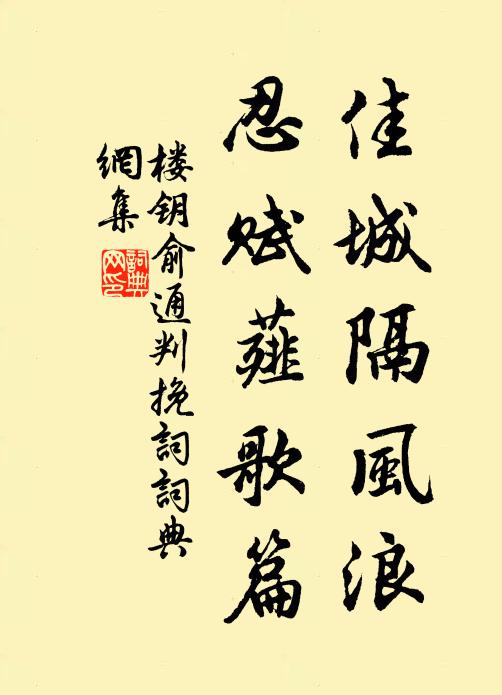 佳城隔風浪
忍赋薤歌篇
楼钥俞通判挽詞詞典
網集
詞典网印